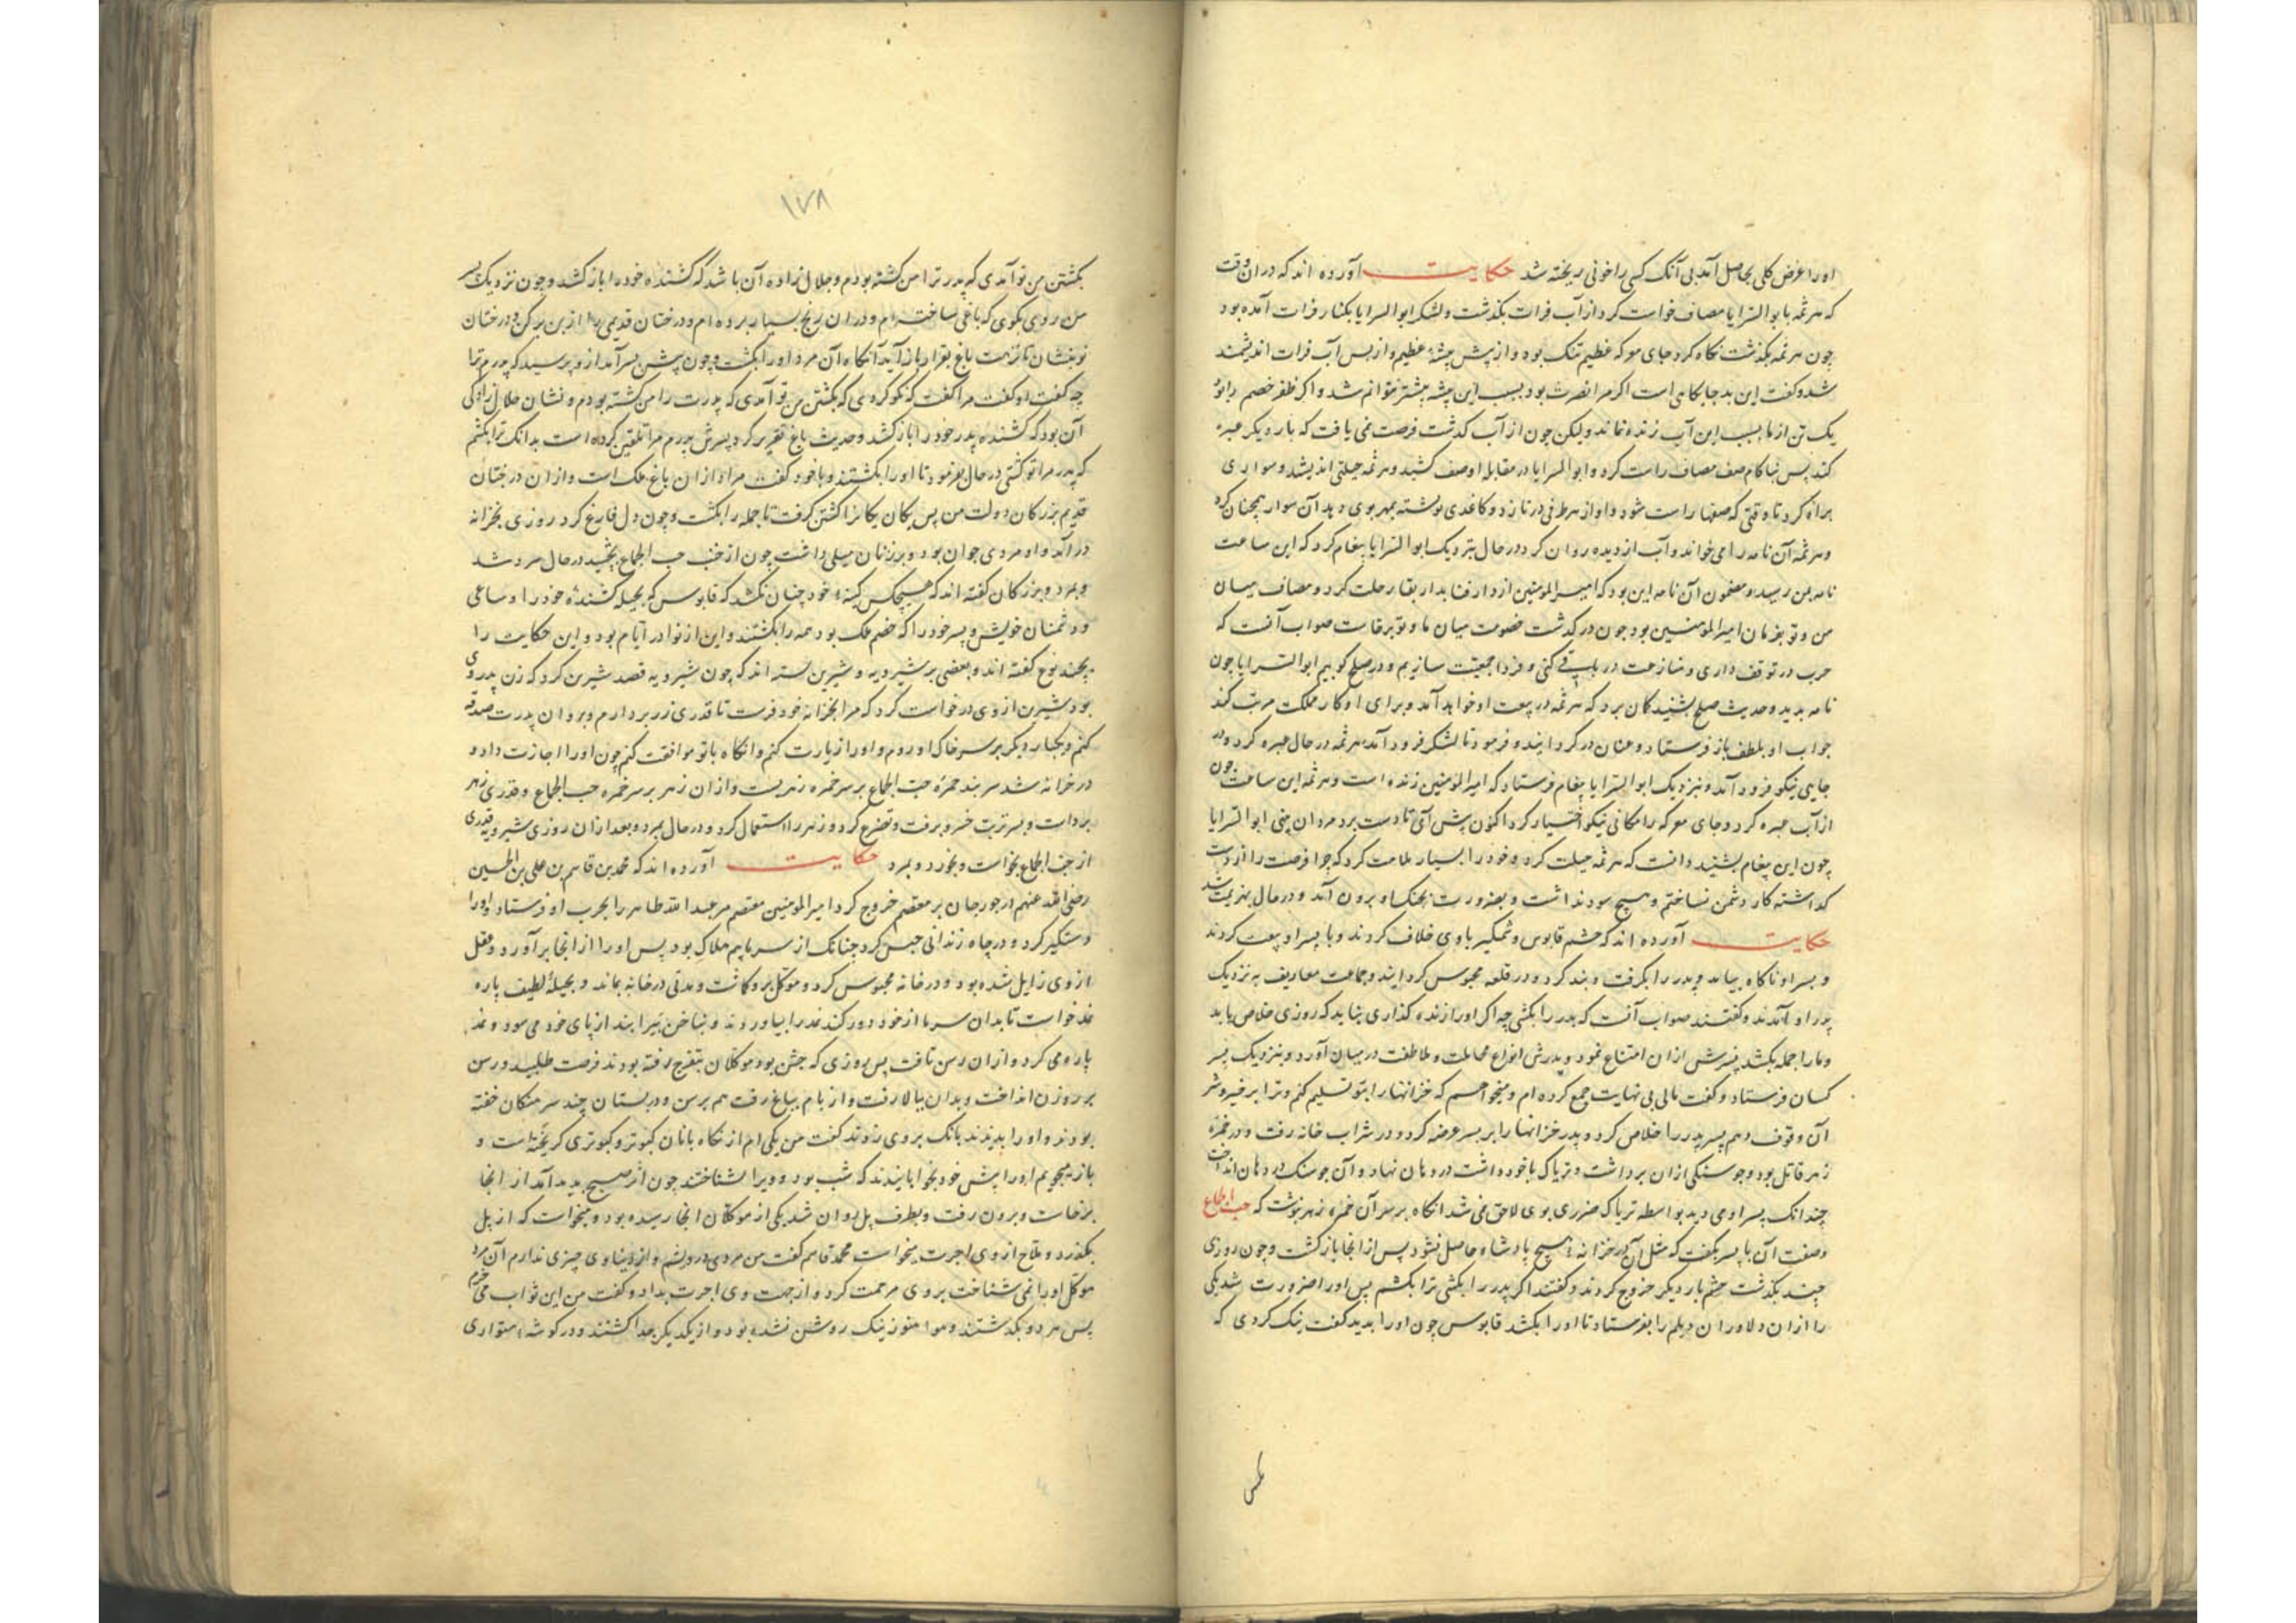 او را غرض کلی بحاصل آمد بی آنک کسی را خونی ریخته شد حکایت آورده اند که در ان وقت
که هرثمه با ابو السرایا مصاف خواست کرد از آب فرات بگذشت و لشکر ابو السرایا بکنار فرات آمده بود
چون هرثمه بگذشت نگاه کرد جای معرکه عظیم تنک بود و از پیش بیشهٔ عظیم و از پس آب فرات اندیشمند
شد و گفت این بد جایگاهی است اگر مرا نصرت بود بسبب این بیشه پیشتر نتوانم شد و اگر ظفر خصم را بود
یک تن از ما بسبب این آب زنده نماند ولیکن چون از آب گذشت فرصت نمی یافت که بار دیگر عبره
کند پس بناکام صف مصاف راست کرد و ابو السرایا در مقابله او صف کشید و هرثمه حیلتی اندیشید و سواری
براه کرد تا وقتی که صفها راست شود او از طرفی در تازد و کاغدی نوشته بمهر بوی دهد آن سوار همچنان کرد
و هرثمه آن نامه را می خواند و آب از دیده روان کرد در حال بنزدیک ابو السرایا پیغام کرد که این ساعت
نامه بمن رسید و مضمون آن نامه این بود که امیر المومنین از دار فنا بدار بقا رحلت کرد و مصاف میان
من و تو بفرمان امیر المومنین بود چون در گذشت خصومت میان ما و تو برخاست صواب آنست که
حرب در توقف داری و منازعت در باقی کنی و فردا جمعیت سازیم و در صلح کوبیم ابو السرایا چون
نامه بدید و حدیث صلح بشنید گمان برد که هرثمه در بیعت او خواهد آمد و برای او کار مملکت مرتب کند
جواب او بلطف باز فرستاد و عنان در گردانید و فرمود تا لشکر فرود آمد هرثمه در حال عبره کرد و در
جایی نیکو فرود آمد و بنزدیک ابو السرایا پیغام فرستاد که امیر المومنین زنده است و هرثمه این ساعت چون
از آب عبره کرد و جای معرکه را مکانی نیکو اختیار کرد اکنون پیش آی تا دست برد مردان بینی ابو السرایا
چون این پیغام بشنید دانست که هرثمه حیلت کرد و خود را بسیار ملامت کرد که چرا فرصت را از دست
گذاشته کار دشمن نساختم و هیچ سود نداشت و بضرورت بجنگ او برون آمد و در حال بهزیمت شد
حکایت آورده اند که حشم قابوس وشمگیر با وی خلاف کردند و با پسر او بیعت کردند
و پسر او ناگاه بیامد و پدر را بگرفت و بند کرد و در قلعه محبوس گردانید و جماعت معاریف به نزدیک
پدر او آمدند و گفتند صواب آنست که پدر را بکشی چه اگر او را زنده گذاری بشاید که روزی خلاص یابد
و ما را جمله بکشد پسرش از ان امتناع نمود و پدرش انواع مجاملت و ملاطفت در میان آورد و بنزدیک پسر
کسان فرستاد و گفت مالی بی نهایت جمع کرده ام و میخواهم که خزانها را بتو تسلیم کنم و ترا بر
آن وقوف دهم پسر پدر را خلاص کرد و پدر خزانها را بر پسر عرضه کرد و در شراب خانه رفت و در خمره
زهر قاتل بود و جو سنگی از ان برداشت و تریاک با خود داشت در دهان نهاد و آن جو سنگ در دهان انداخت
چندانک پسر او می دید بواسطه تریاک ضرری بوی لاحق نمی شد انگاه بر سر آن خمره زهر نوشت که حب الجماع
و صفت آن با پسر بگفت که مثل آن در خزانه هیچ پادشاه حاصل نشود پس از انجا بازگشت و چون روزی
چند بگذشت حشم بار دیگر خروج کردند و گفتند اگر پدر را بکشی ترا بکشیم پس او را ضرورت شد یکی
را از ان دلاوران دیلم را بفرستاد تا او را بکشد قابوس چون او را بدید گفت نیک کردی که
۱۷۸
بکشتن من تو آمدی که پدر ترا من کشته بودم و حلال زاده آن باشد که کشنده خود را باز کشد و چون نزدیک پسر
من روی بگوی که باغی ساخته ام و در ان رنج بسیار برده ام و درختان قدیمی را از بن برکن و درختان
نو بنشان تا نزهت باغ بقرار باز آید آنگاه آن مرد او را بکشت و چون پیش پسر آمد از و پرسید که پدرم ترا
چه گفت او گفت مرا گفت که نکو کردی که بکشتن من تو آمدی که پدرت را من کشته بودم و نشان حلال زادگی
آن بود که کشنده پدر خود را باز کشد و حدیث باغ تقریر کرد پسرش پدرم مرا تلقین کرده است بدانک ترا بکشم
که پدر مرا تو کشتی در حال بفرمود تا او را بکشتند و با خود گفت مراد از ان باغ ملک است و از ان درختان
قدیم بزرگان دولت من پس یکان یکان را کشتن گرفت تا جمله را بکشت و چون دل فارغ کرد روزی بخزانه
در آمد و او مردی جوان بود و بر زنان میلی داشت چون از حب الجماع بچشید در حال سرد شد
و بمرد و بزرگان گفته اند که هیچکس کینه خود چنان نکشد که قابوس که بحیله کشنده خود را و ساعی
و دشمنان خویش و پسر خود را که خصم ملک بود همه را بکشتند و این از نوادر ایام بود و این حکایت را
بچند نوع گفته اند و بعضی بر شیرویه و شیرین بسته اند که چون شیرویه قصد شیرین کرد که زن پدر وی
بود شیرین از وی درخواست کرد که مرا بخزانه خود فرست تا قدری زر بردارم و بروان پدرت صدقه
کنم و یکبار دیگر بر سر خاک او روم و او را زیارت کنم وانگاه با تو موافقت کنم چون او را اجازت داد و
در خزانه شد سر بند خمره حب الجماع بر سر خمره زهر بست و از ان زهر بر سر خمره حب الجماع و قدری زهر
برداشت و بسر تربت خسرو برفت و تضرع کرد و زهر را استعمال کرد و در حال بمرد و بعد از ان روزی شیرویه قدری
از حب الجماع بخواست و بخورد و بمرد حکایت آورده اند که محمد بن قاسم بن علی بن الحسین
رضی الله عنهم در جورجان بر معتصم خروج کرد امیر المومنین معتصم مر عبد الله طاهر را بحرب او فرستاد و او را
دستگیر کرد و در چاه زندانی حبس کرد چنانک از سرما بیم هلاک بود پس او را از انجا برآورد و عقل
از وی زایل شده بود و در خانه محبوس کرد و موکل برو گماشت و مدتی در خانه بماند و بحیلهٔ لطیف پاره
نمد خواست تا بدان سرما از خود دور کند نمد را بیاوردند و بناخن پیرا بند از پای خود می سود و نمد
پاره می کرد و از ان رسن تافت پس روزی که جشن بود موکلان بتفرج رفته بودند فرصت طلبید و رسن
بر روزن انداخت و بدان ببالا رفت و از بام بباغ رفت هم برسن و در بستان چند سرهنگان خفته
بودند و او را بدیدند بانک بر وی زدند گفت من یکی ام از نگاه بانان کبوتر و کبوتری گریخته است و
باز میجویم او را پیش خود بخوابانیدند که شب بود و ویرا نشناختند چون اثر صبح پدید آمد از انجا
برخاست و برون رفت و بطرف پل روان شد یکی از موکلان انجا رسیده بود و میخواست که از پل
بگذرد و ملاح از وی اجرت میخواست محمد قاسم گفت من مردی درویشم و از دنیاوی چیزی ندارم آن مرد
موکل او را نمی شناخت بر وی مرحمت کرد و از جهت وی اجرت بداد و گفت من این ثواب می خرم
پس هر دو بگذشتند و هوا هنوز نیک روشن نشده بود و از یکدیگر جدا گشتند و در گوشه متواری